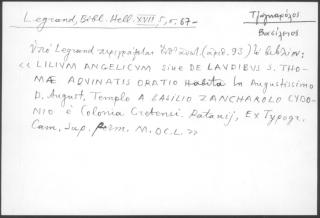 Legrand, Bibl. Hell. XVII 5, σ. 67-
Τζαγκαρόλος
Βασίλειος
Ὑπὸ Legrand περιγράφεται (ἀριθ. 93) τὸ βιβλίον:
« LILIUM ANGELICUM sive DE LAUDIBUS S. THO-
MAE AQUINATIS ORATIO habita in Augustissimo
D. August. Templo A BASILIO ZANCHAROLO CYDO-
NIO è Colonia Cretensi. Patavij, Ex Typogr.
Cam. Sup. perm. M. DC. L. »